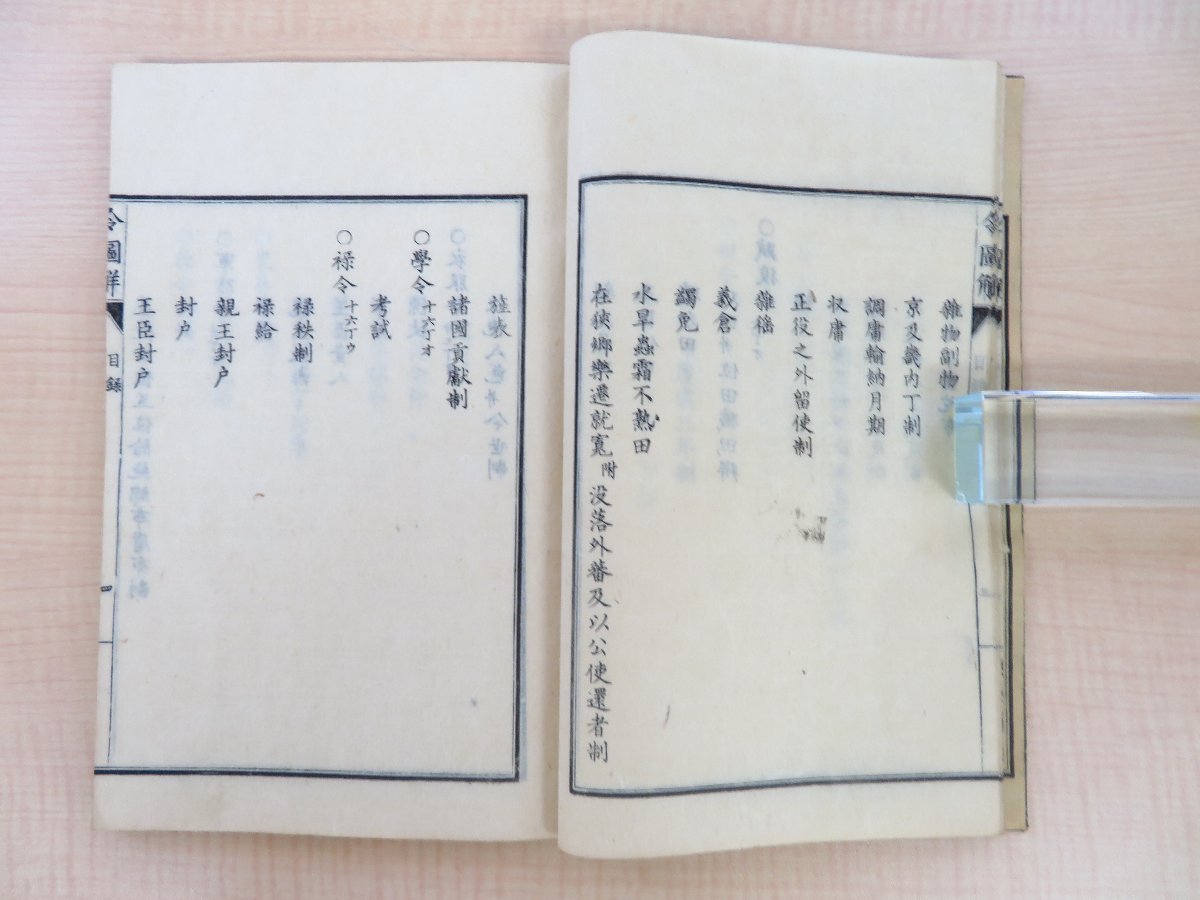 雜物副物
京及畿内丁制
調庸輸納月期
収庸
正役之外留使制
雜徭
義倉
蠲免田
水旱蟲霜不熟田
在狹鄉樂遷就寬附没落外蕃及以公使還者制
令圖解
目
旌表
諸國貢獻制
○學令十六丁オ
考試
○禄令十六丁ウ
禄秩制
禄給
親王封户
封户
王臣封户
令圖解
目録